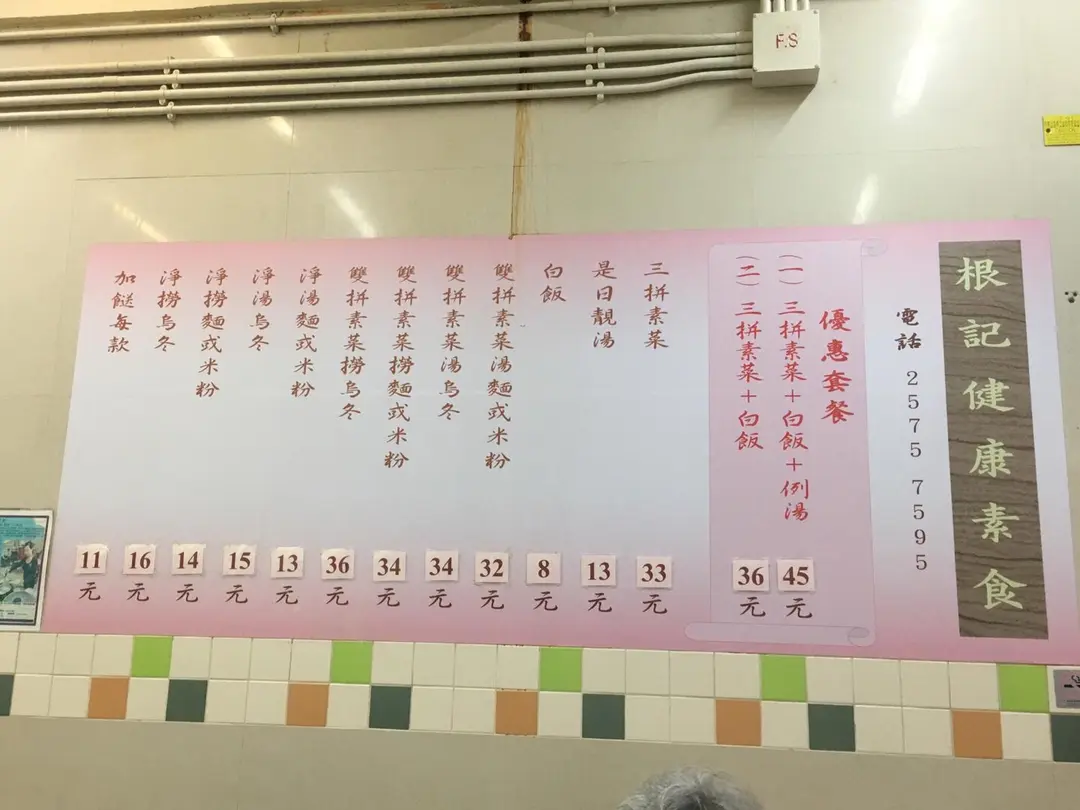 F.S
根記健康素食
電話 2575 7595
優惠套餐
(一) 三拼素菜+白飯+例湯 45元
(二) 三拼素菜+白飯 36元
三拼素菜 33元
是日靚湯 13元
白飯 8元
雙拼素菜湯麵或米粉 32元
雙拼素菜湯烏冬 34元
雙拼素菜撈麵或米粉 34元
雙拼素菜撈烏冬 36元
淨湯麵或米粉 13元
淨湯烏冬 15元
淨撈麵或米粉 14元
淨撈烏冬 16元
加餸每款 11元